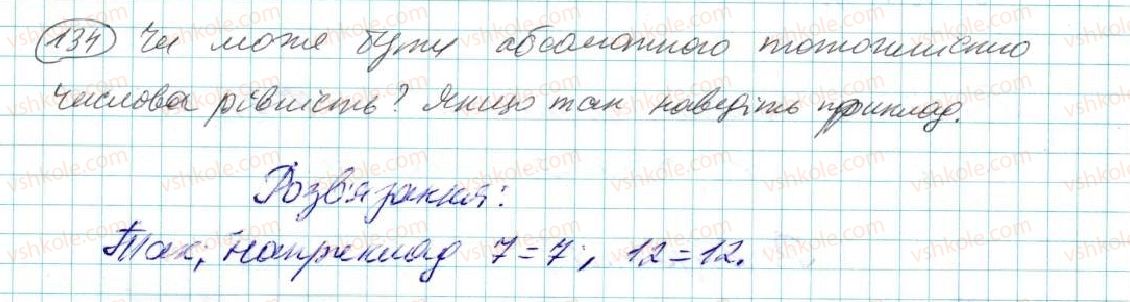 134 Чи може бути абсолютного тотожністю
числова рівність? Якщо так наведіть приклад.
Розв'язання:
Так; напреклад 7=7; 12=12.